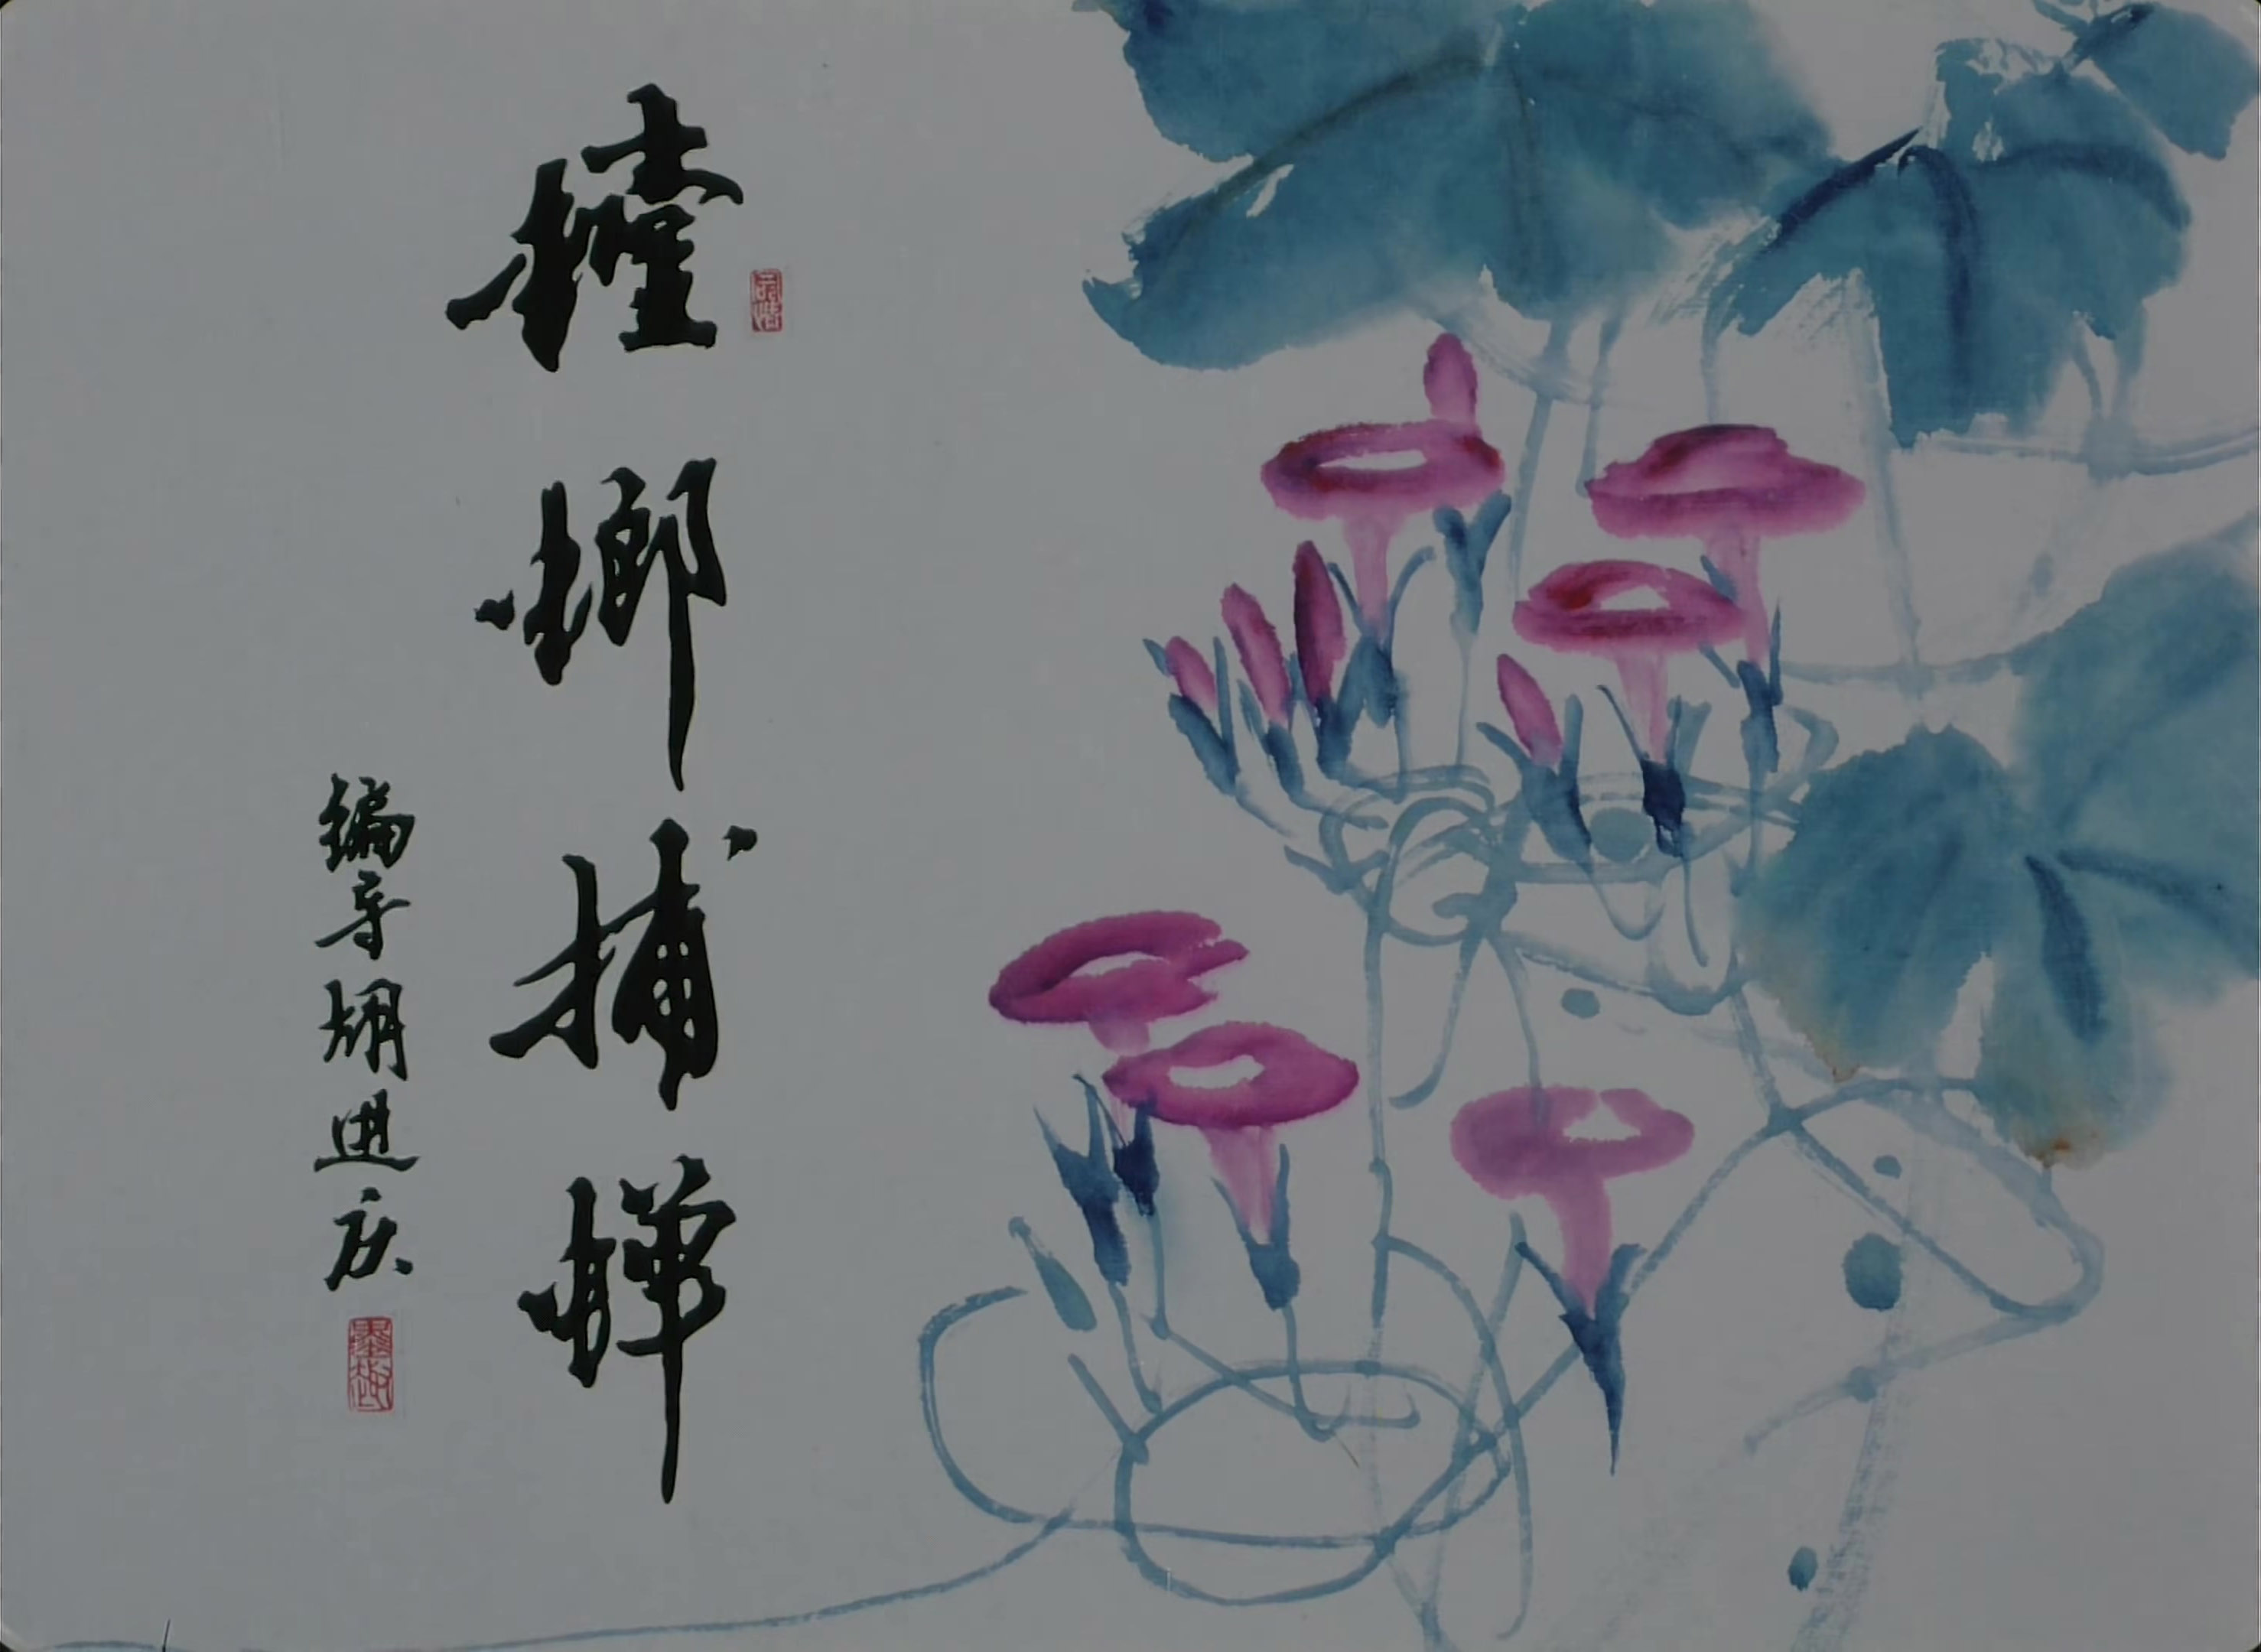 螳螂捕蝉
编导胡进庆